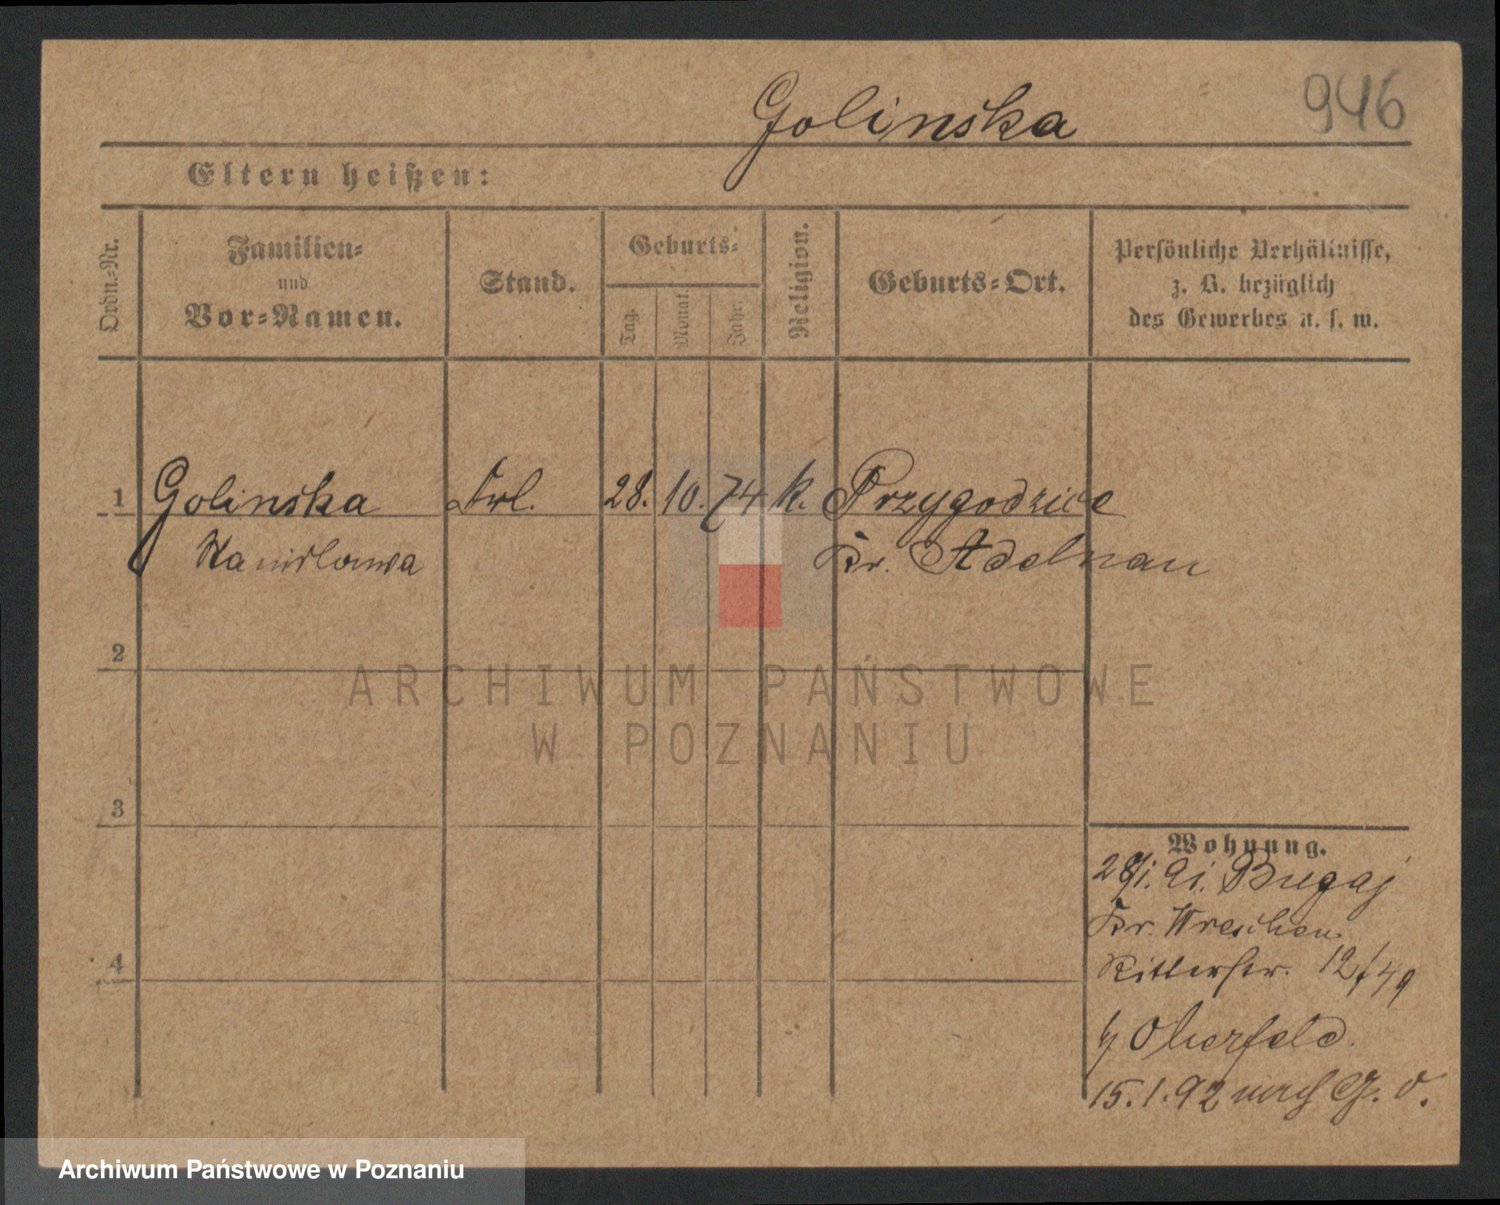 Golinska
946
Eltern heißen:
Ordn.-Nr.
Familien-
und
Vor-Namen.
Stand.
Geburts-
Tag.
Monat.
Jahr.
Religion.
Geburts-Ort.
Persönliche Verhältnisse,
z. B. bezüglich
des Gewerbes u. s. w.
1 Golinska Frl. 28. 10. 74 k. Przygodzice
Stanislawa Kr. Adelnau
2
ARCHIWUM PAŃSTWOWE
W POZNANIU
3
Wohnung.
28/1. 91. Bugaj
Kr. Wreschen
4
Ritterstr. 12/49
b/ Oberfeld.
15.1.92 nach G. O.
Archiwum Państwowe w Poznaniu